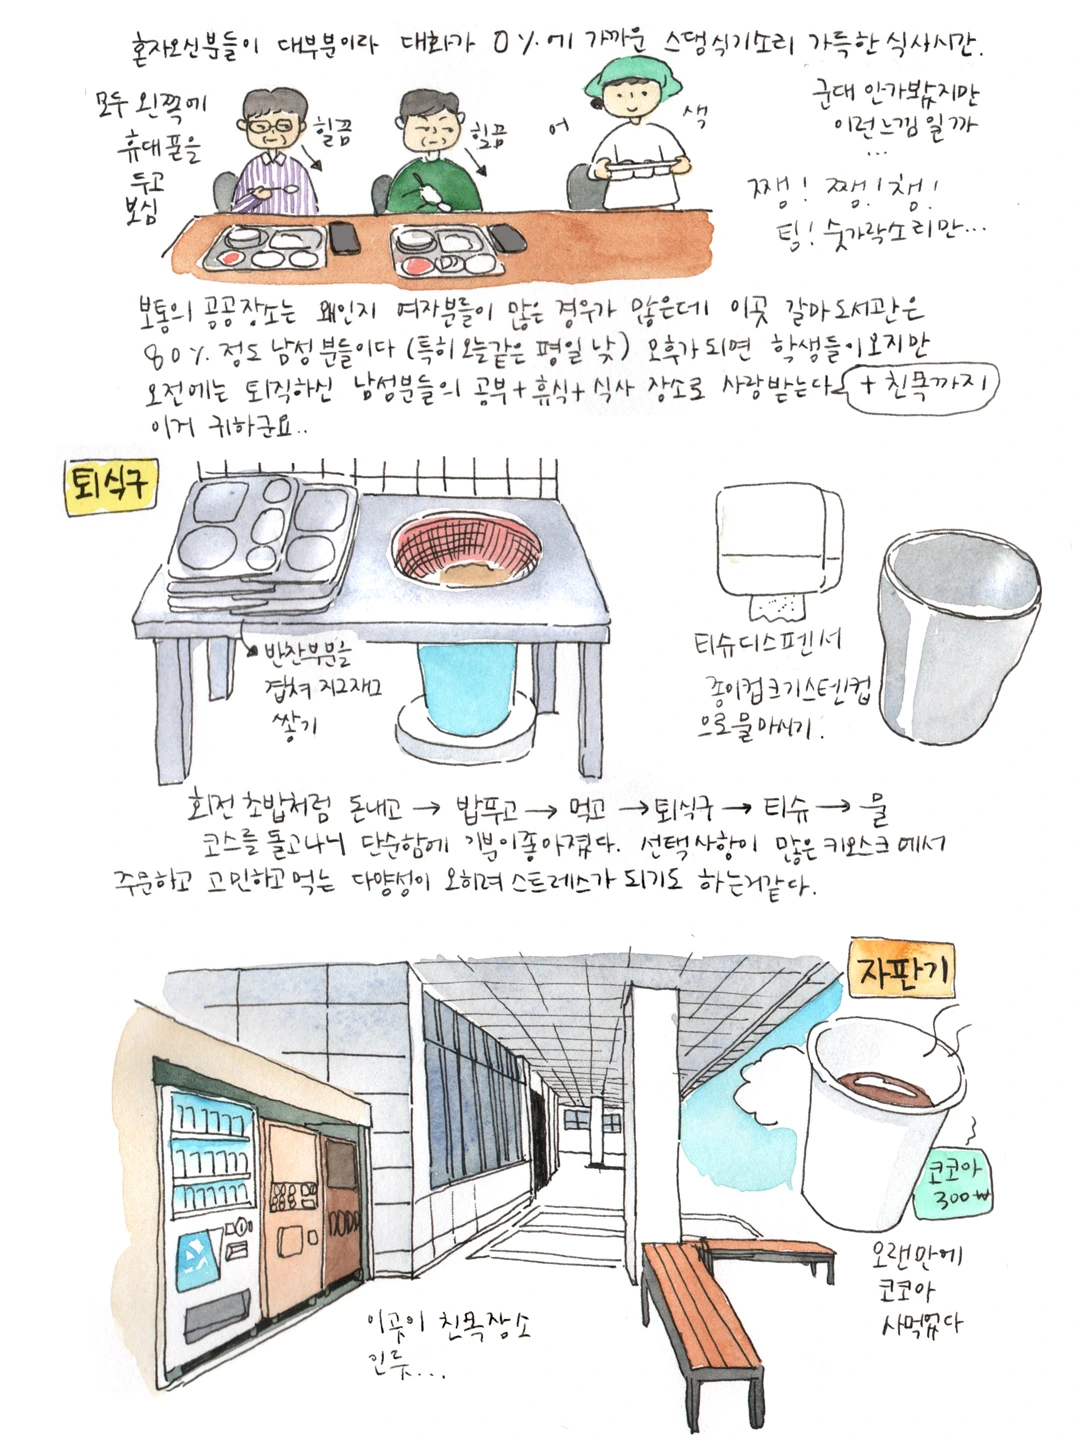 혼자오신분들이 대부분이라 대화가 0%에 가까운 스댕식기소리 가득한 식사시간.
모두 왼쪽에
휴대폰을
두고
보심
힐끔
힐끔
어
색
군대 안가봤지만
이런느낌일까
...
쨍! 쨍! 챙!
팅! 숫가락소리만...
보통의 공공장소는 왜인지 여자분들이 많은 경우가 많은데 이곳 갈마도서관은
80% 정도 남성분들이다 (특히오늘같은 평일 낮) 오후가되면 학생들이오지만
오전에는 퇴직하신 남성분들의 공부+휴식+식사 장소로 사랑받는다 + 친목까지
이거 귀하군요..
퇴식구
반찬부분을
겹쳐 차곡차곡
쌓기
티슈디스펜서
종이컵크기스텐컵
으로물마시기.
회전초밥처럼 돈내고 → 밥푸고 → 먹고 → 퇴식구 → 티슈 → 물
코스를 돌고나니 단순함에 기분이좋아졌다. 선택사항이 많은 키오스크에서
주문하고 고민하고먹는 다양성이 오히려스트레스가 되기도 하는거같다.
자판기
코코아
300₩
오랜만에
코코아
사먹었다
이곳이 친목장소
인듯...